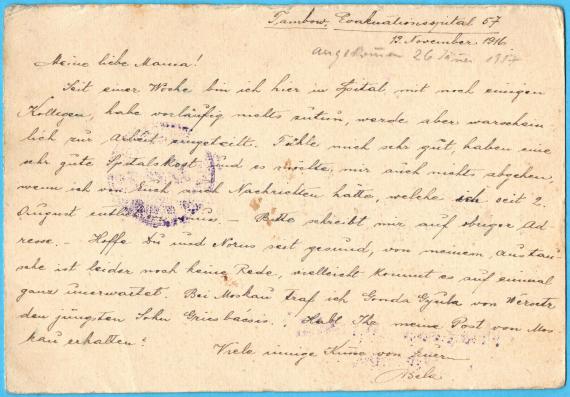 Tambow, Evakuationsspital 57
13. November. 1916
angekommen 26 Jänner 1917
Meine liebe Mama!
Seit einer Woche bin ich hier in Spital, mit noch einigen
Kollegen, habe vorläufig nichts zutun, werde aber warschein
lich zur Arbeit eingeteilt. Fühle mich sehr gut, haben eine
sehr gute Spitalskost und es möchte mir auch nichts abgehen,
wenn ich von Euch auch Nachrichten hätte, welche ich seit 2.
August entbehren muss. Bitte schreibt mir auf obriger Ad-
resse. - Hoffe Du und Norus seit gesund, von meinem austau-
sche ist leider noch keine Rede, vielleicht kommt es auf einmal
ganz unerwartet. Bei Moskau traf ich Gonda Gyula von
den jüngsten Sohn Habt Ihr meine Post von Mos-
kau erhalten?
Viele innige Küsse von Euern
Béla